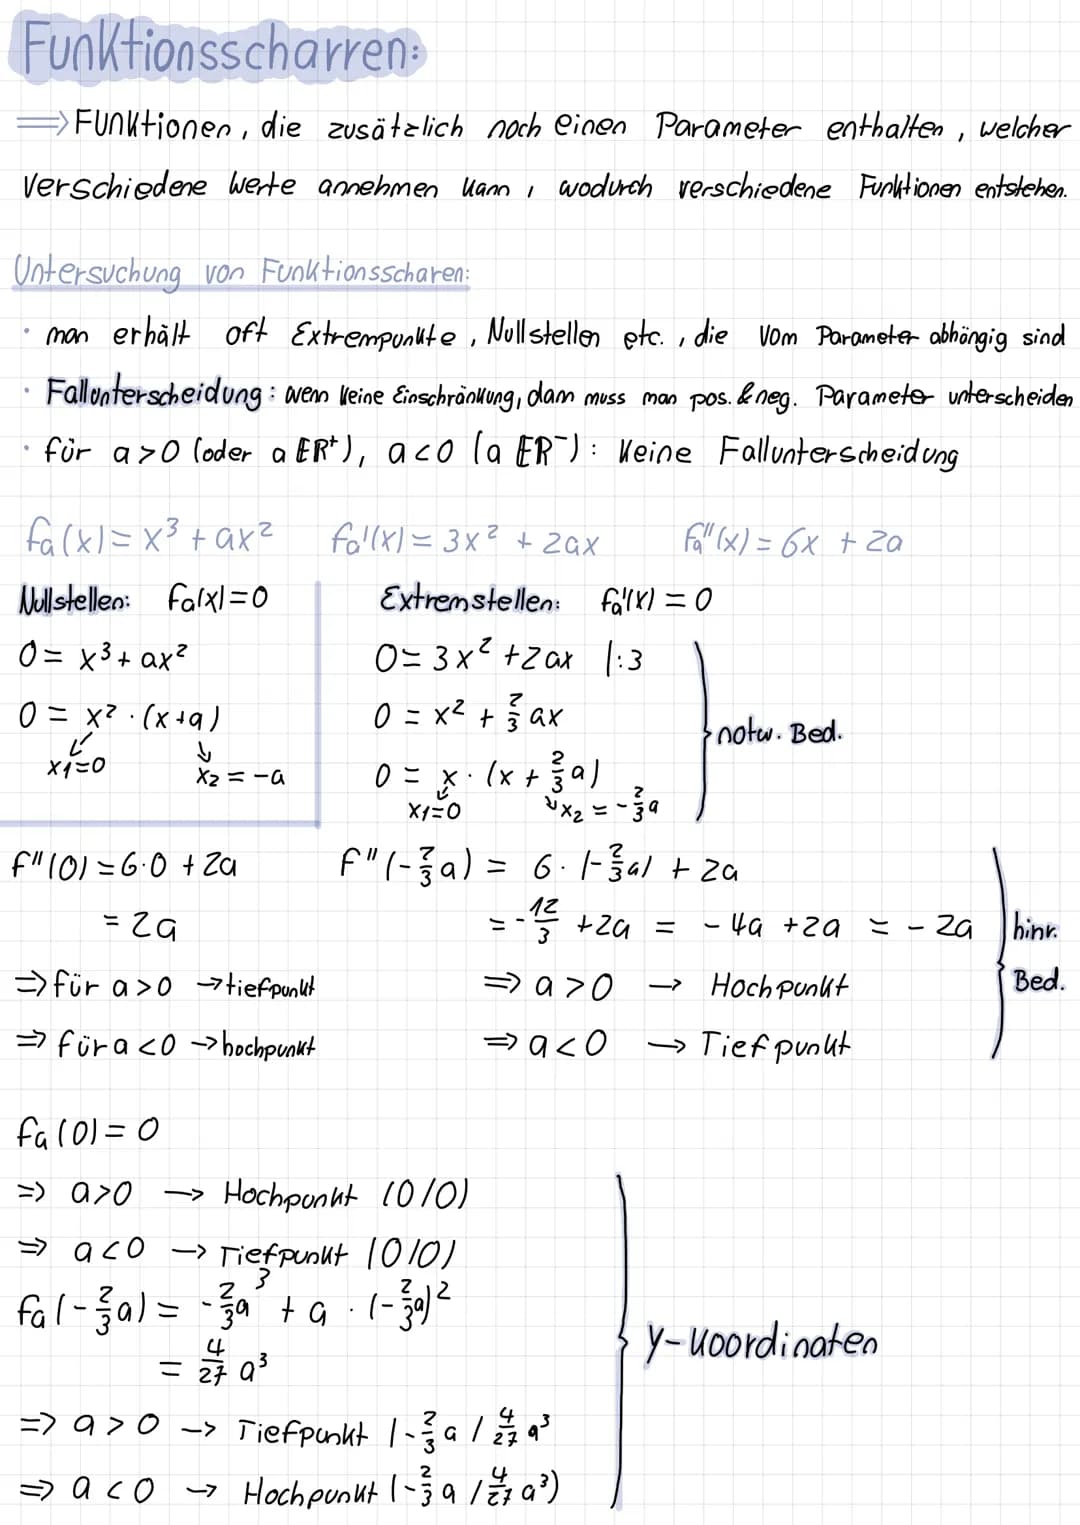 Funktionsscharren:
⇒ Funktionen, die zusätzlich noch einen Parameter enthalten, welcher
verschiedene Werte annehmen kann, wodurch verschiedene Funktionen entstehen.
Untersuchung von Funktionsscharen:
· man erhält oft Extrempunkte, Nullstellen etc., die vom Parameter abhängig sind
· Fallunterscheidung: wenn keine Einschränkung, dann muss man pos. & neg. Parameter unterscheiden
· für a>0 (oder a∈R⁺), a<0 (a∈R⁻): keine Fallunterscheidung
fa(x) = x³ + ax² fa'(x) = 3x² + 2ax fa''(x) = 6x + 2a
Nullstellen: fa(x)=0
0 = x³ + ax²
0 = x² · (x+a)
x1=0 x2 = -a
Extremstellen: fa'(x) = 0
0 = 3x² + 2ax |:3
0 = x² + 2/3 ax
0 = x · (x + 2/3 a)
x1=0 x2 = -2/3 a
notw. Bed.
f''(0) = 6·0 + 2a
= 2a
⇒ für a>0 → tiefpunkt
⇒ für a<0 → hochpunkt
f''(-2/3 a) = 6 · (-2/3 a) + 2a
= -12/3 + 2a = -4a + 2a = -2a
⇒ a>0 → Hochpunkt
⇒ a<0 → Tiefpunkt
hinr.
Bed.
fa(0) = 0
⇒ a>0 → Hochpunkt (0/0)
⇒ a<0 → Tiefpunkt (0/0)
fa(-2/3 a) = -2/3 a³ + a · (-2/3 a)²
= 4/27 a³
⇒ a>0 → Tiefpunkt (-2/3 a / 4/27 a³
⇒ a<0 → Hochpunkt (-2/3 a / 4/27 a³)
y-Koordinaten